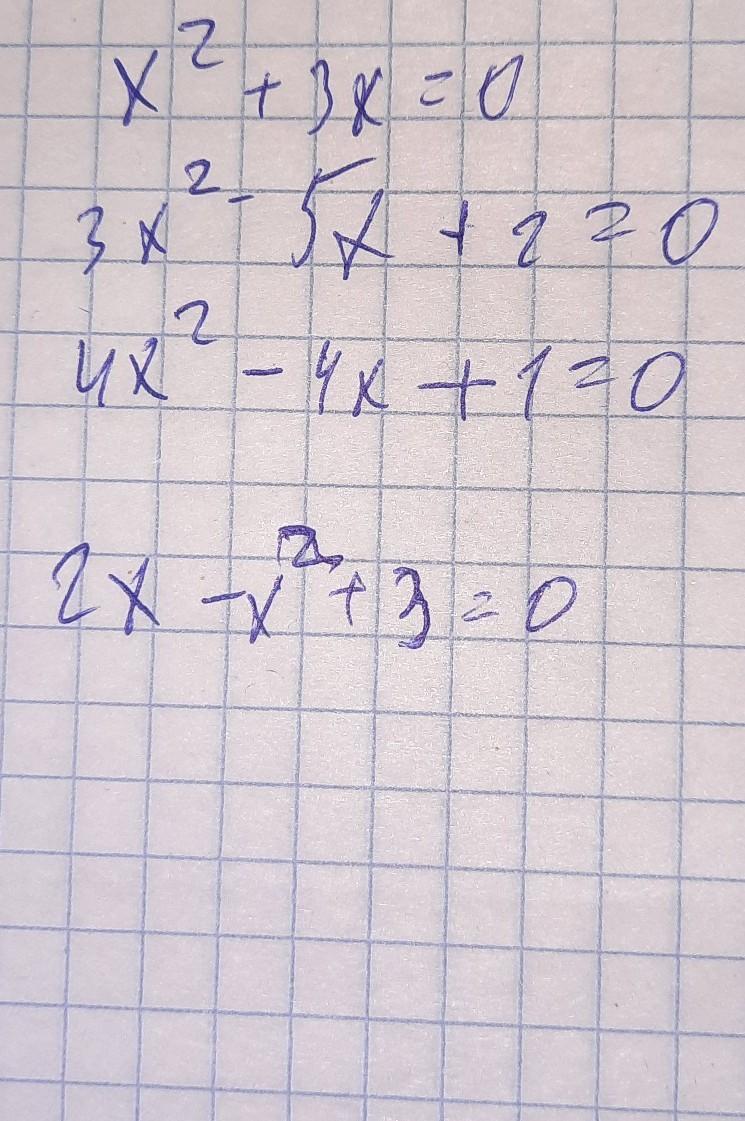 x² + 3x = 0
3x² - 5x + 2 = 0
4x² - 4x + 1 = 0
2x - x² + 3 = 0